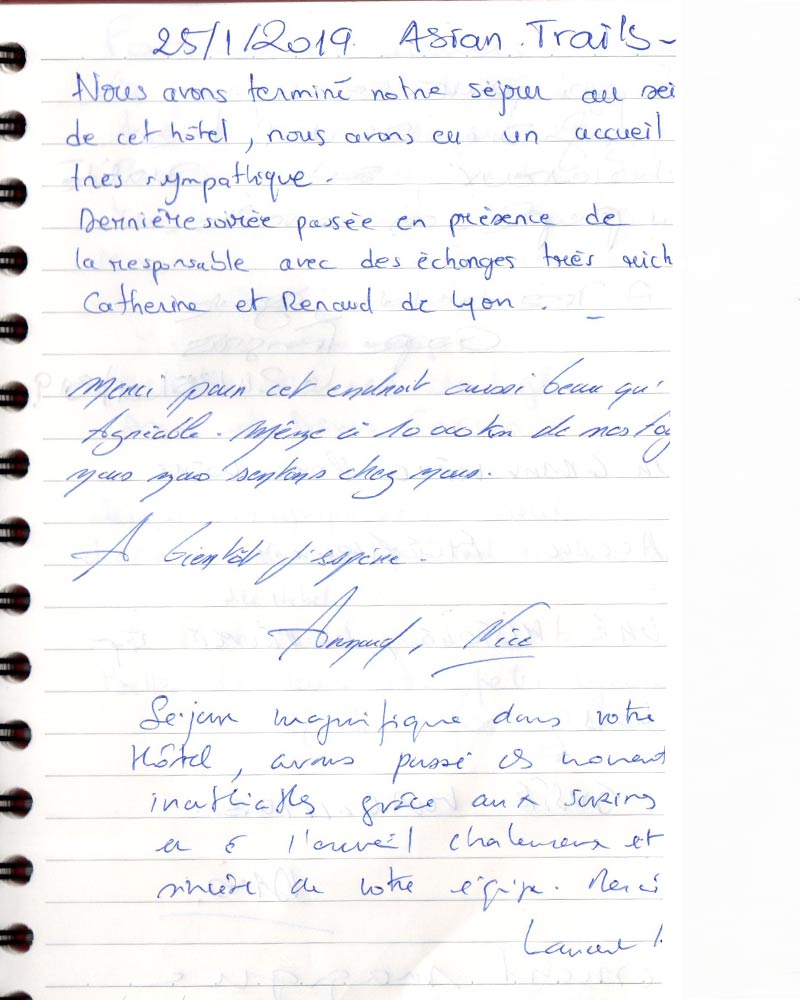 25/1/2019 Asian Trails -
Nous avons terminé notre séjour au sei
de cet hôtel, nous avons eu un accueil
tres sympathique.
Dernière soirée passée en présence de
la responsable avec des échanges très rich
Catherine et Renaud de Lyon.
Merci pour cet endroit aussi beau qu'
Agréable. Même à 10 000 km de nos
nous nous sentons chez nous.
A bientôt j'espère.
Arnaud, Nice
Séjour magnifique dans votre
Hôtel, avons passé des moment
grâce aux
et à l'acceuil chaleureux et
sincère de votre équipe. Merci
Laurent